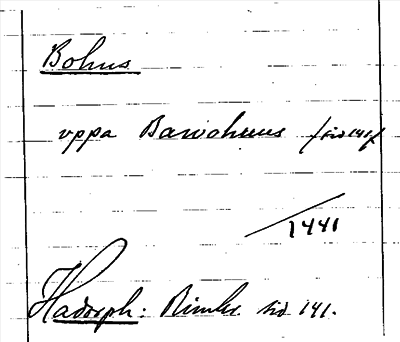 Bohus
uppa Bawahuus /sid 141/
1441
Hadorph: Rimkr. sid 141.